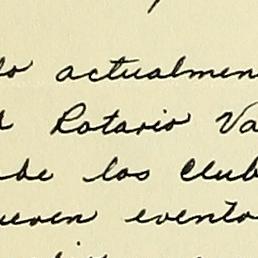 do actualmen
Rotario Va
de los Club
ueven evento